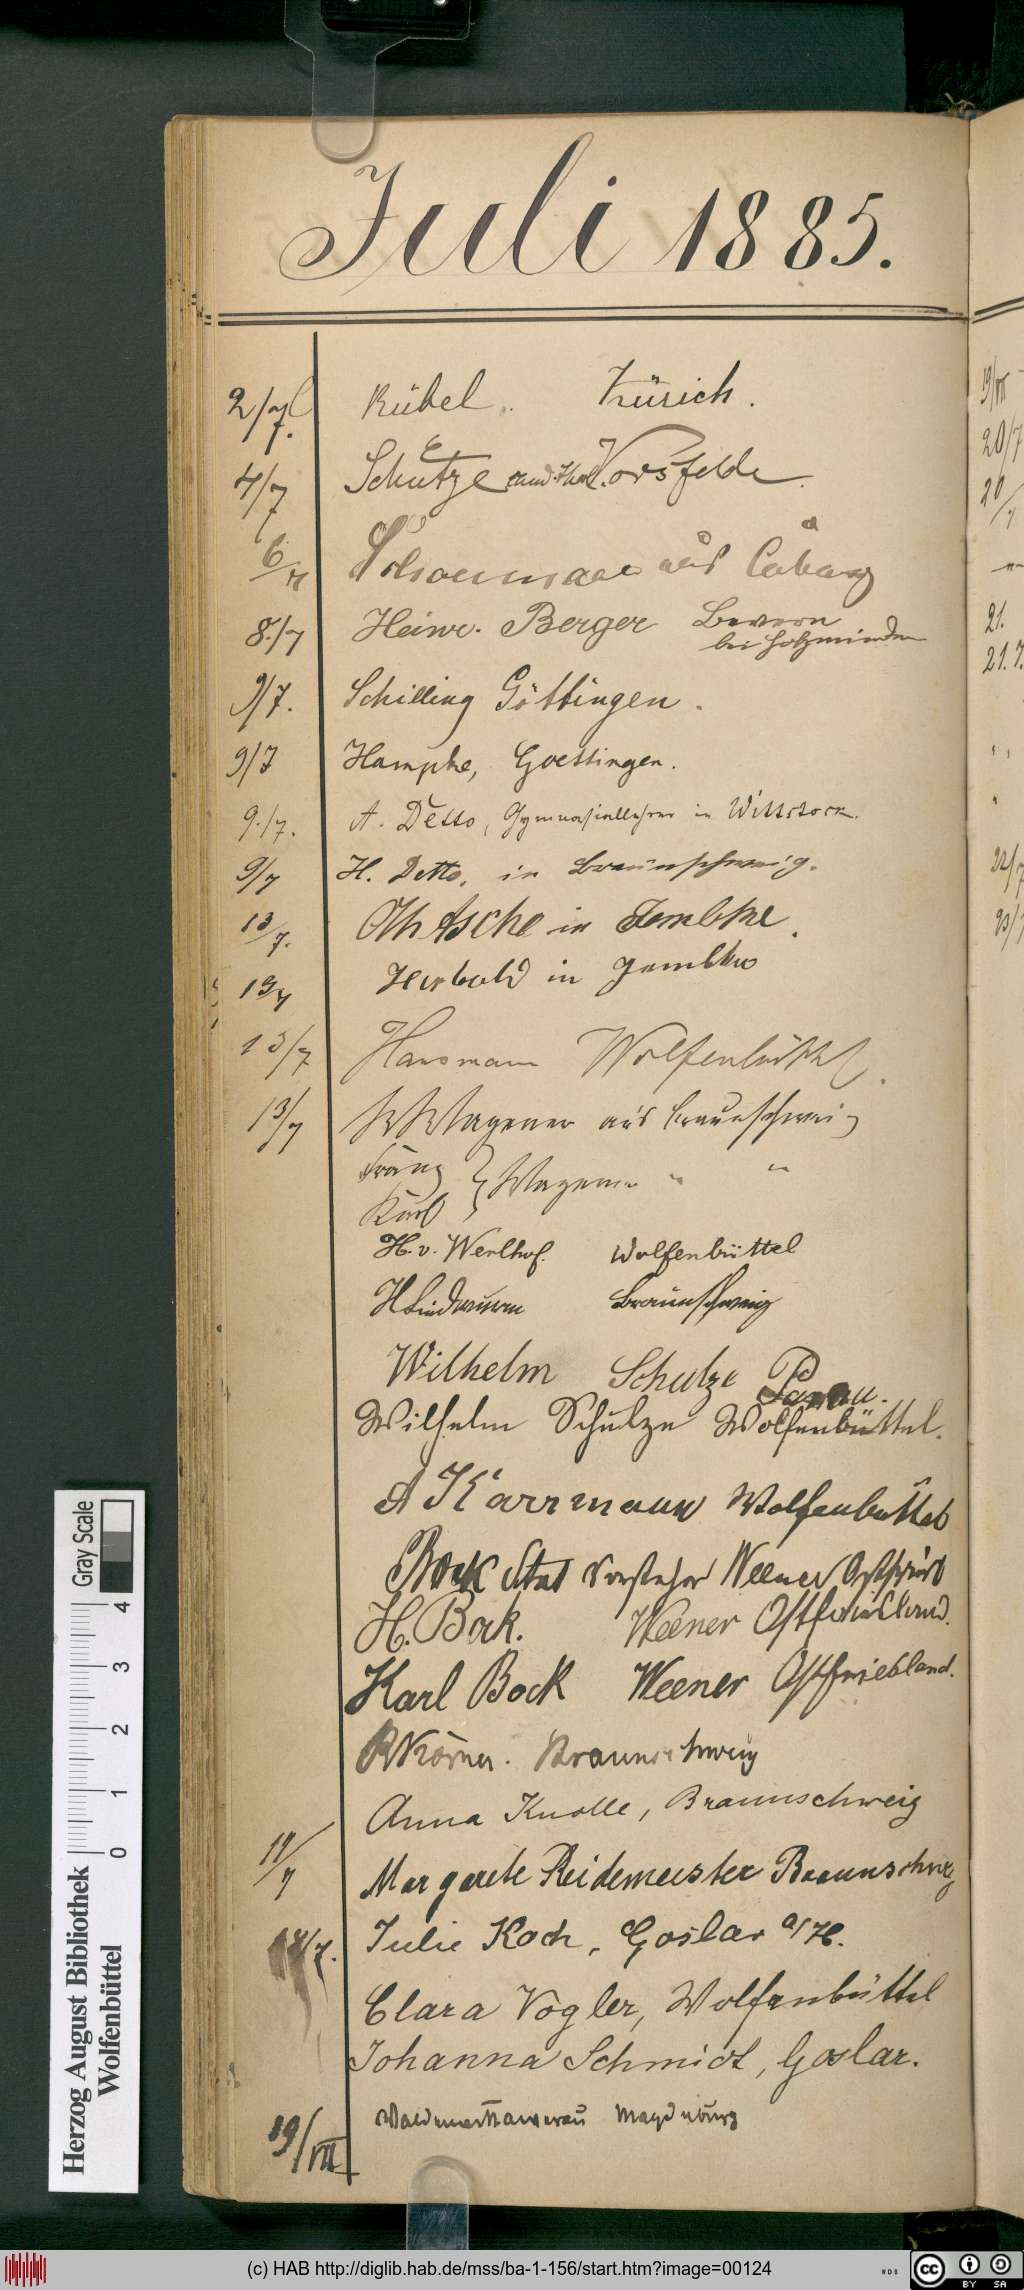 Juli 1885.
2/7. Rübel. Zürich.
4/7 Schütze cand. theol. Vorsfelde.
6/7 aus Coburg
8./7 Heinr. Berger Bevern
bei Holzminden
9/7. Schilling Göttingen.
9/7 Hampke, Goettingen.
9./7. A. Detto, Gymnasiallehrer in Wittstock.
9/7 H. Detto, in Braunschweig.
13/7. Oth Asche in Jembke.
13/7 Herbold in Jembke
13/7 Hansmann Wolfenbüttel.
13/7 W Wagener aus Braunschweig
Franz
Karl } Wagener " "
H. v. Werlhof. Wolfenbüttel
H Lindemann Braunschweig
Wilhelm Schulze
Wilhelm Schulze Wolfenbüttel.
A Karrmann Wolfenbüttel
Bock Stat Vorsteher Weener Ostfriesl
H. Bock. Weener Ostfriesland.
Karl Bock Weener Ostfriesland.
R Körner. Braunschweig
Anna Knolle, Braunschweig
17/7 Margarete Reidemeister Braunschweig
18/7. Julie Koch, Goslar a/H.
Clara Vogler, Wolfenbüttel
Johanna Schmidt, Goslar.
19/VII Waldemar Kawerau Magdeburg
19/VII
20/7
20/7
21.
21.7.
22/7
23/7
Herzog August Bibliothek
Wolfenbüttel
0 1 2 3 4
Gray Scale
(c) HAB http://diglib.hab.de/mss/ba-1-156/start.htm?image=00124
WDB
cc BY SA